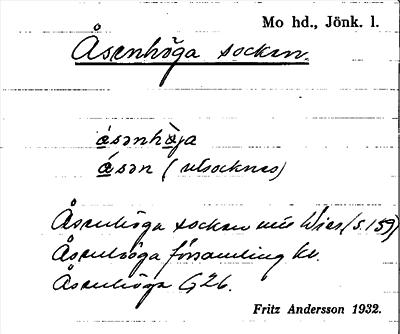 Mo hd., Jönk. l.
Åsenhöga socken.
åsənhöga
åsən (utsocknes)
Åsenhöga socken (s. 159)
Åsenhöga församling kv.
Åsenhöga G26.
Fritz Andersson 1932.